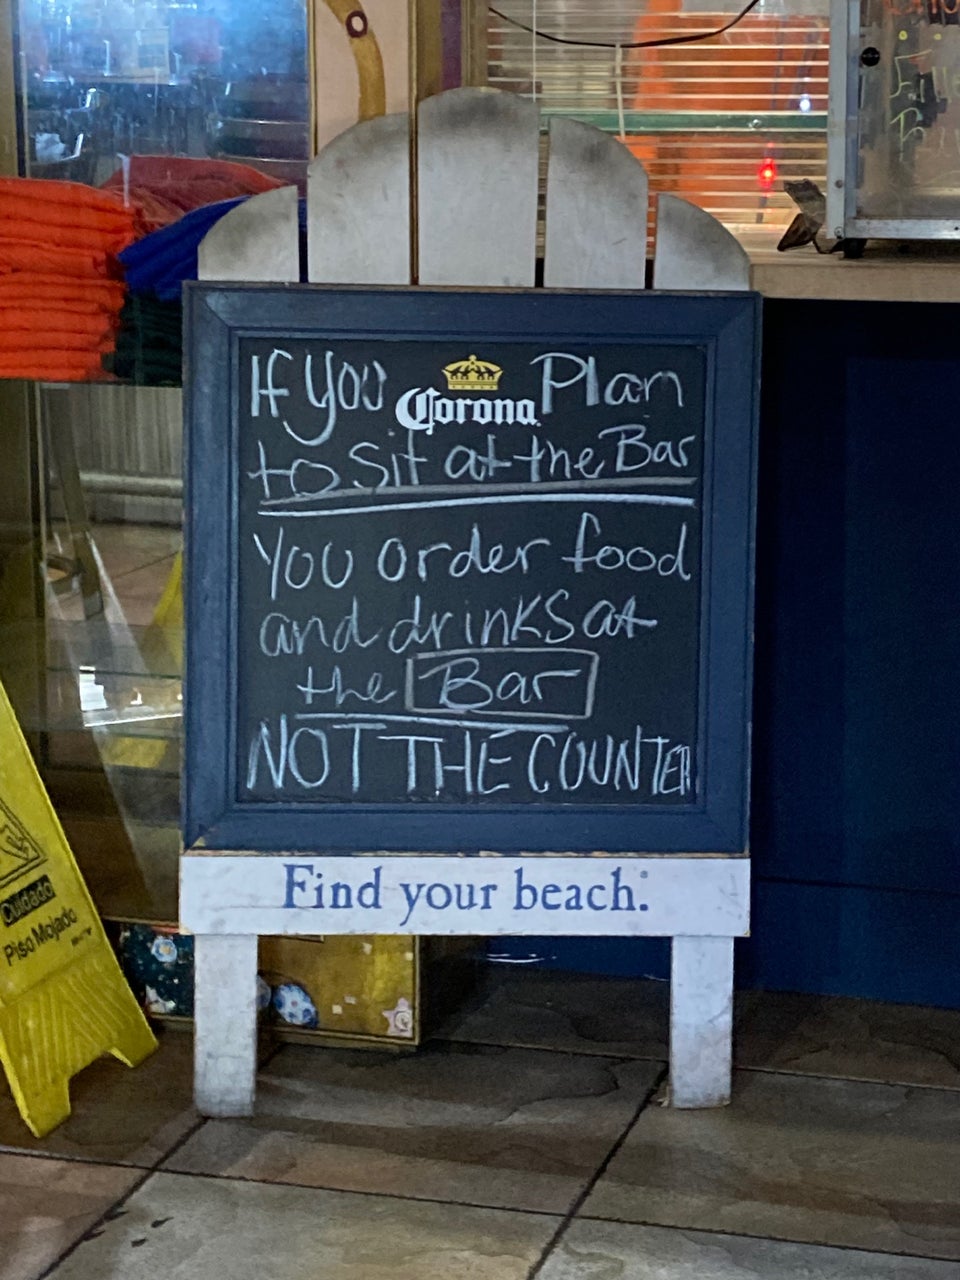 If You Corona Plan
to Sit at the Bar
You order food
and drinks at
the Bar
NOT THE COUNTER
Find your beach.
Cuidado
Piso Mojado